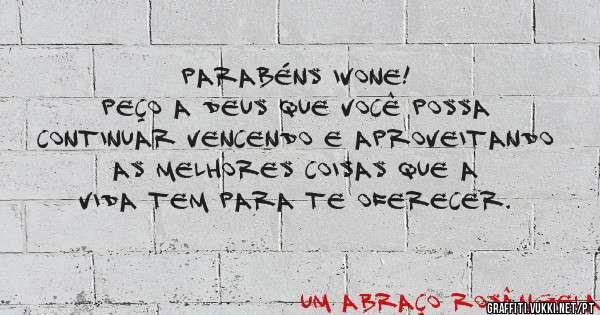 PARABÉNS IVONE!
PEÇO A DEUS QUE VOCÊ POSSA
CONTINUAR VENCENDO E APROVEITANDO
AS MELHORES COISAS QUE A
VIDA TEM PARA TE OFERECER.
UM ABRAÇO ROSÂNGELA
GRAFFITI.VUKKI.NET/PT